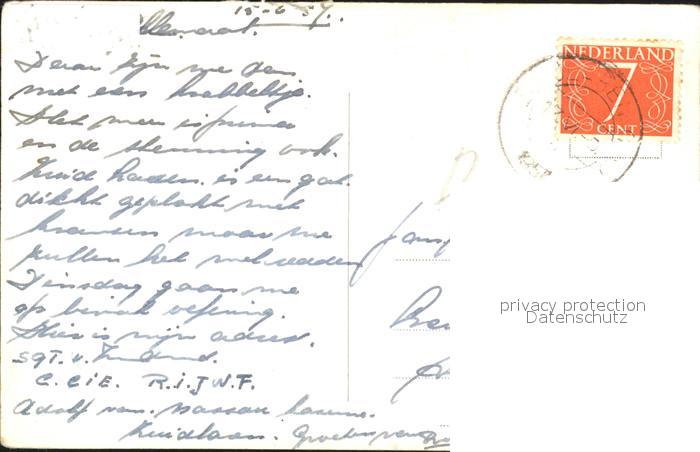 15-6-54.
Daar zijn we dan
met een krabbeltje.
Het weer is prima
en de stemming ook.
Zuid Laren is een gat
dikht geplakt met
kranten maar we
zullen het wel redden
Dinsdag gaan we
op bivak oefening.
Hier is mijn adres.
SGT. v.
C. CIE. R.I.J.W.F.
Adolf van Nassau kazerne.
Zuidlaren. Groeten van
NEDERLAND
7
CENT
privacy protection
Datenschutz